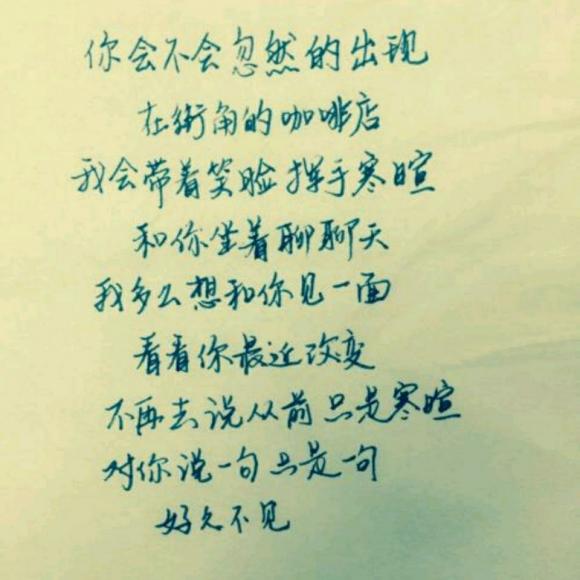 你会不会忽然的出现
在街角的咖啡店
我会带着笑脸挥手寒暄
和你坐着聊聊天
我多么想和你见一面
看看你最近改变
不再去说从前只是寒暄
对你说一句只是一句
好久不见